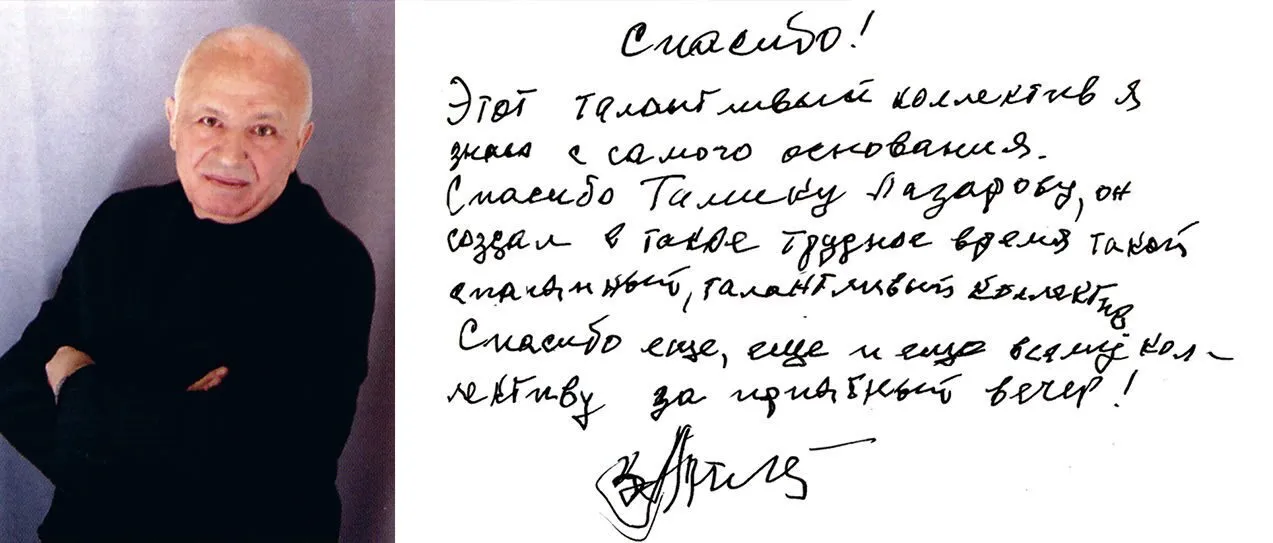 Спасибо!
Этот талантливый коллектив я
знаю с самого основания.
Спасибо Тамику Лазарову, он
создал в такое трудное время такой
спаянный, талантливый коллектив
Спасибо еще, еще и еще всему кол-
лективу за приятный вечер!